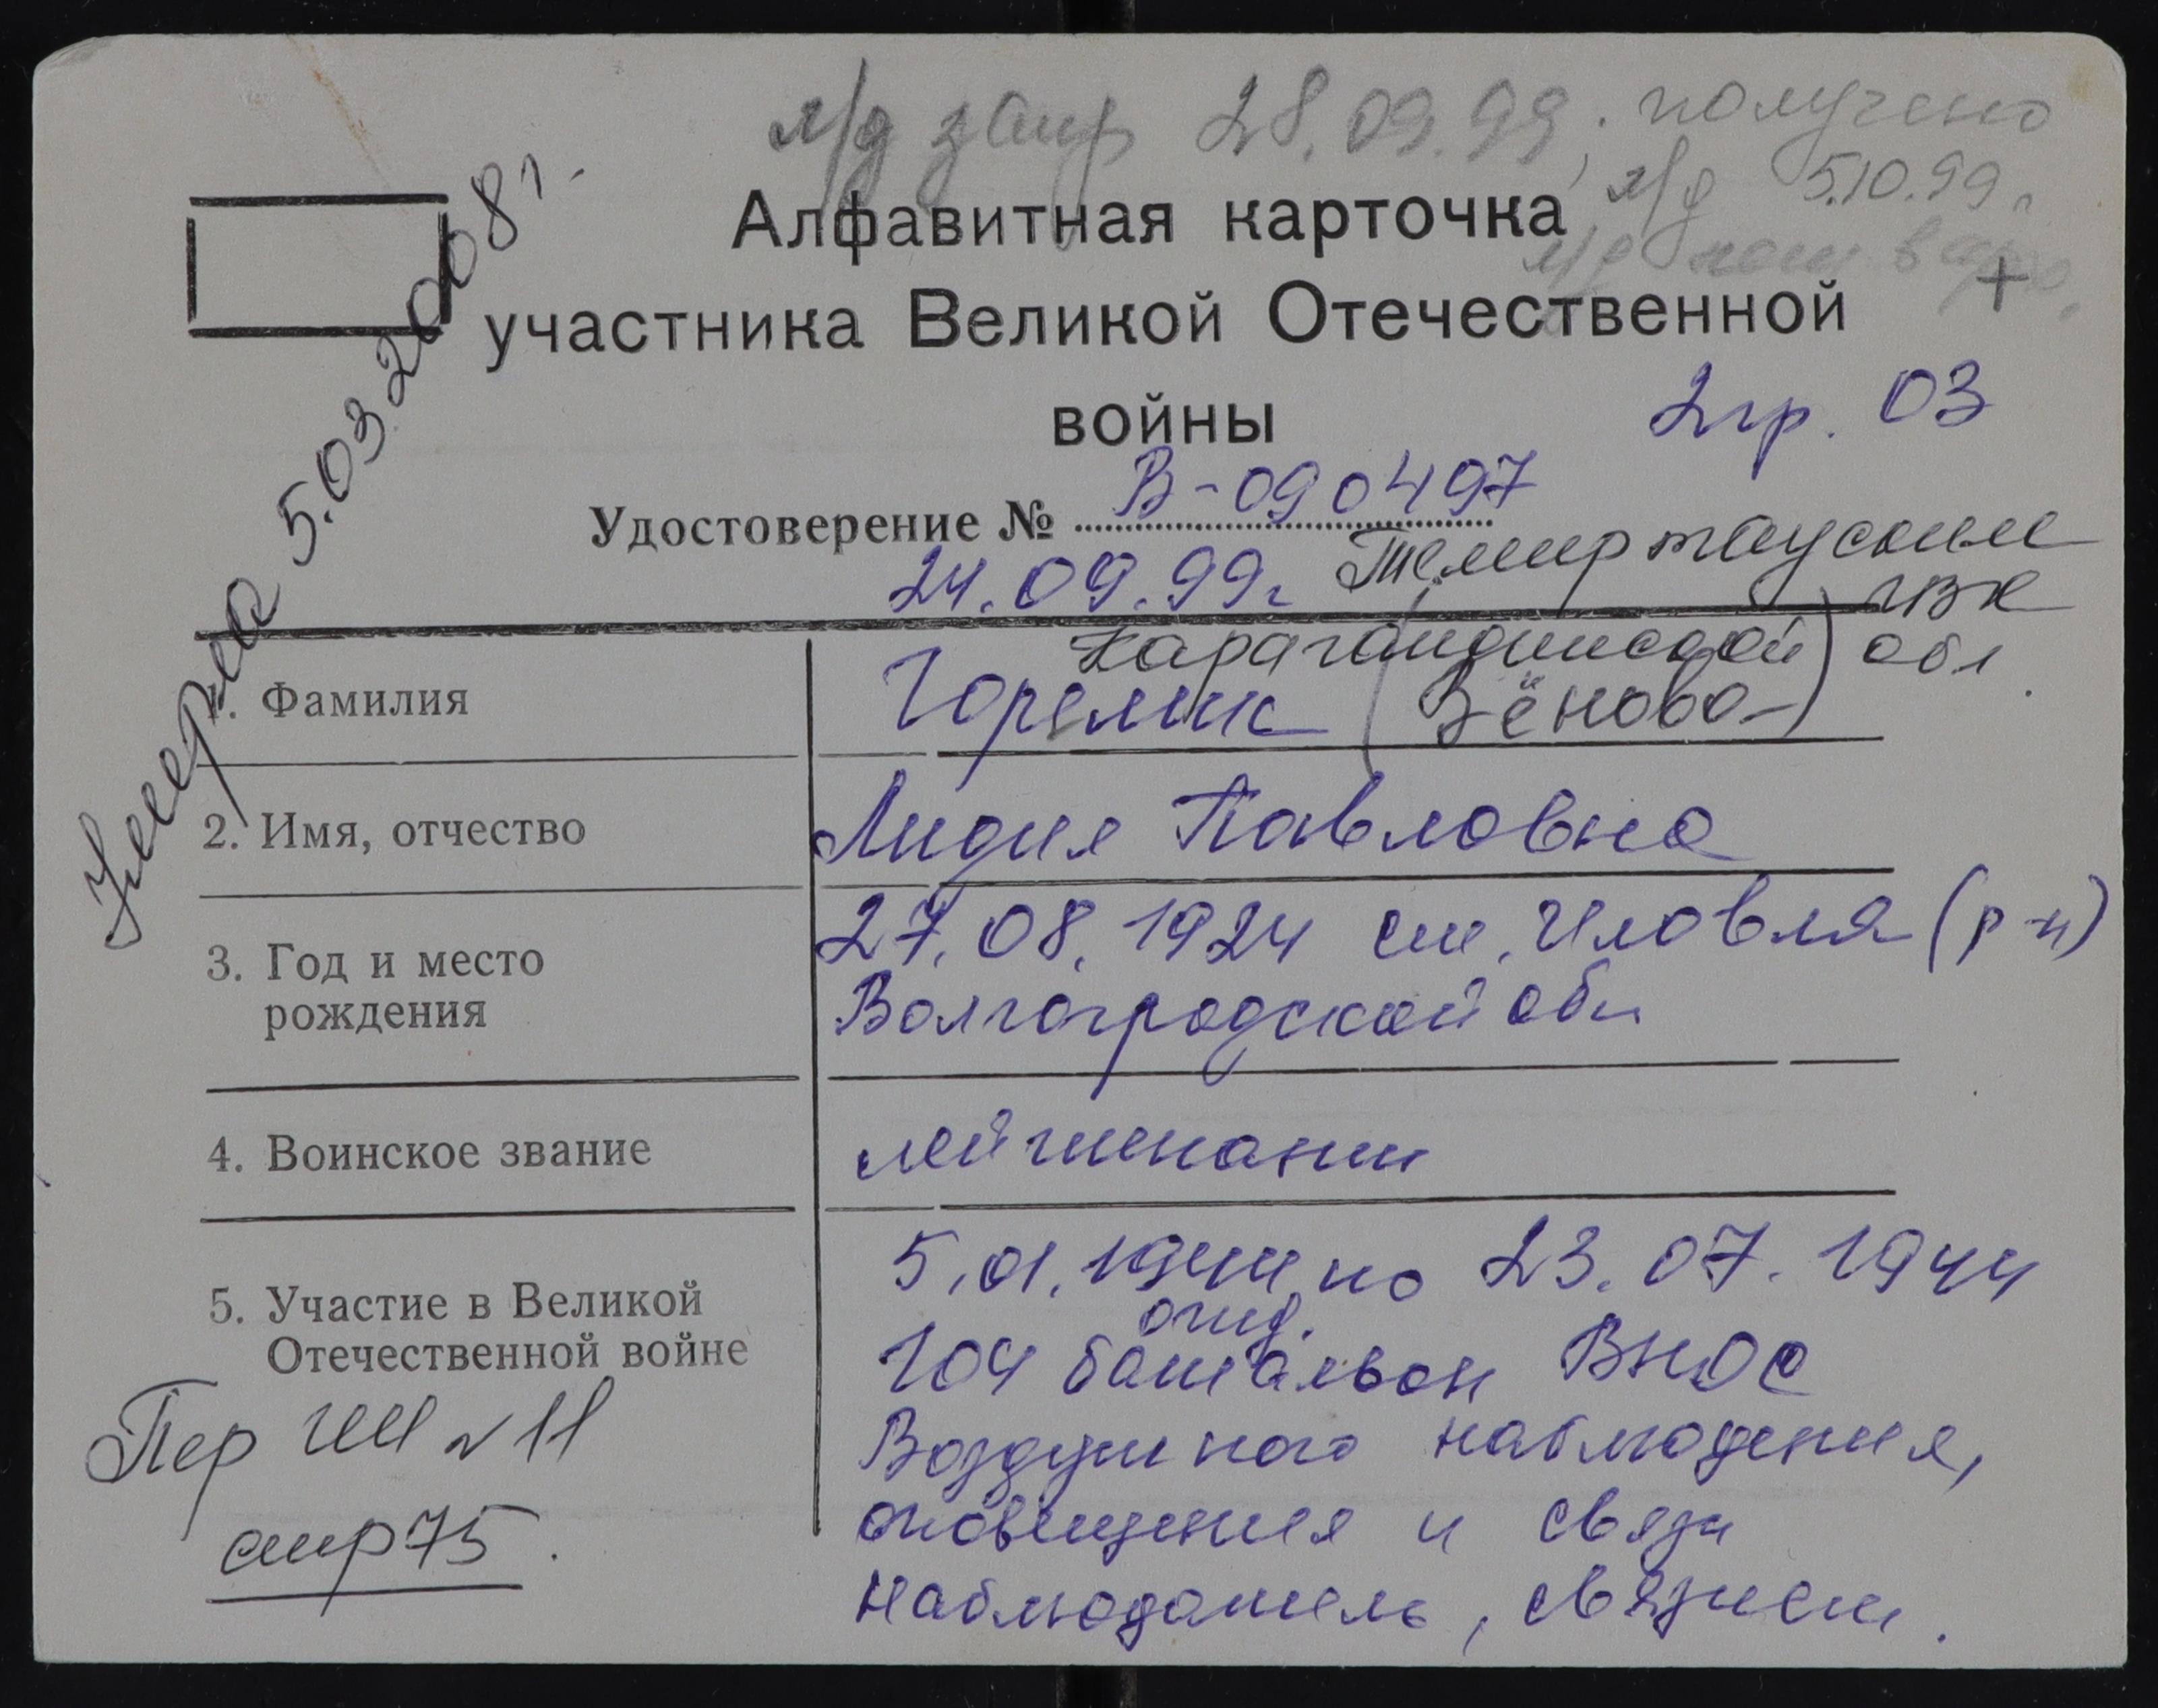 л/д запр 28.09.99, получено
л/д 5.10.99 г
Алфавитная карточка
участника Великой Отечественной
+
войны
2 гр. 03
Удостоверение № В-090497
24.09.99г Темиртауским ГВК
Карагандинской обл.
Умерла 5.03.2008 г.
1. Фамилия
Горелик (Зёнова)
2. Имя, отчество
Лидия Павловна
3. Год и место
рождения
27.08.1924 ст. Иловля (р-н)
Волгоградской обл
4. Воинское звание
лейтенант
5. Участие в Великой
Отечественной войне
5.01.1944 по 23.07.1944
отд.
104 батальон ВНОС
Воздушного наблюдения,
оповещения и связи
наблюдатель, связист.
Пер № 11
стр 75.